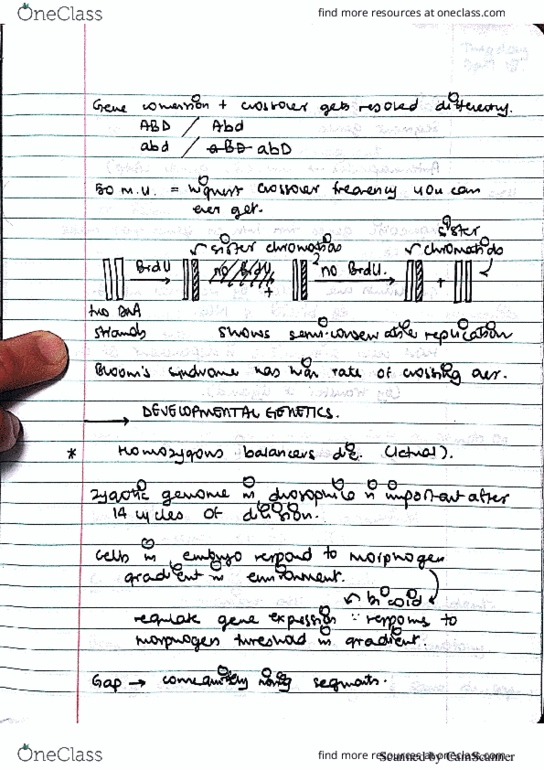 OneClass
find more resources at oneclass.com
Gene conversion + crossover gets resolved differently.
ABD / Abd
abd / aBD abD
50 m.u. = highest crossover frequency you can
ever get.
sister
sister chromatids
chromatids
BrdU
no BrdU
+
2
no BrdU.
+
two DNA
strands
shows semiconservative replication
Bloom's syndrome has high rate of crossing over.
DEVELOPMENTAL GENETICS.
* Homozygous balancers die. (lethal).
Zygotic genome in drosophila is important after
14 cycles of division.
Cells in embryo respond to morphogen
gradient in environment.
bicoid
regulate gene expression ∵ responds to
morphogen threshold in gradient.
Gap → segments.
OneClass
find more resources at oneclass.com
Scanned by CamScanner